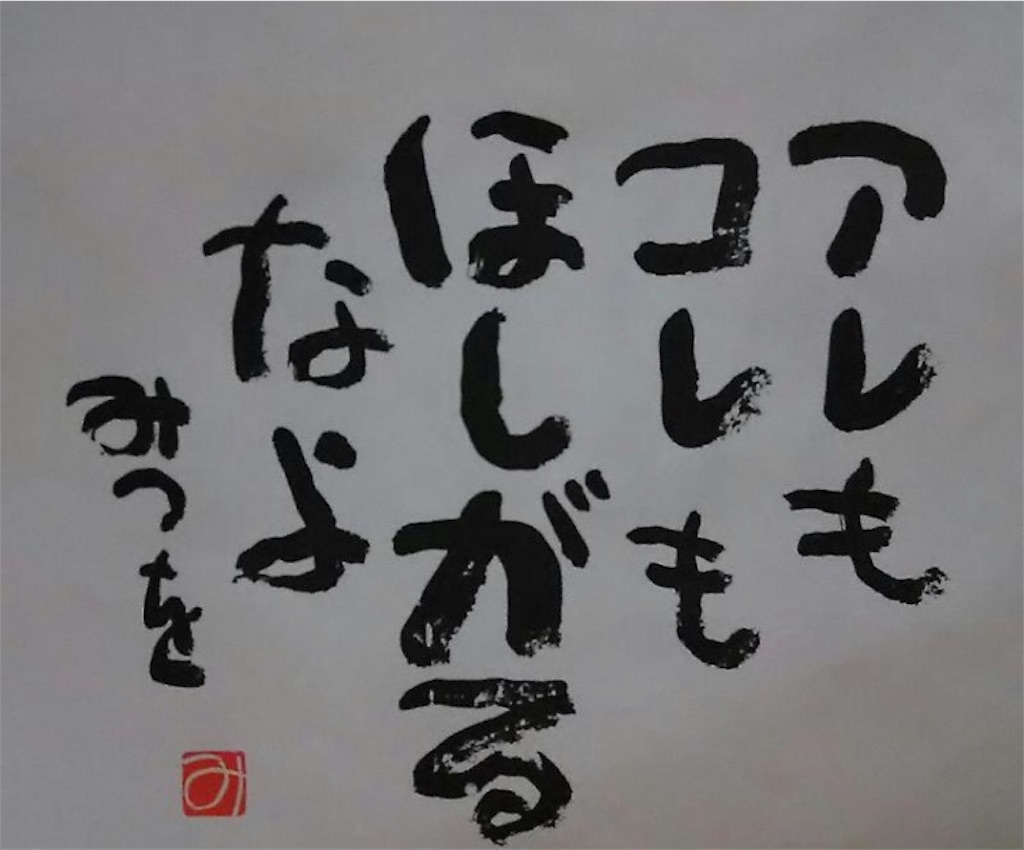 アレも
コレも
ほしがる
なよ
みつを
み